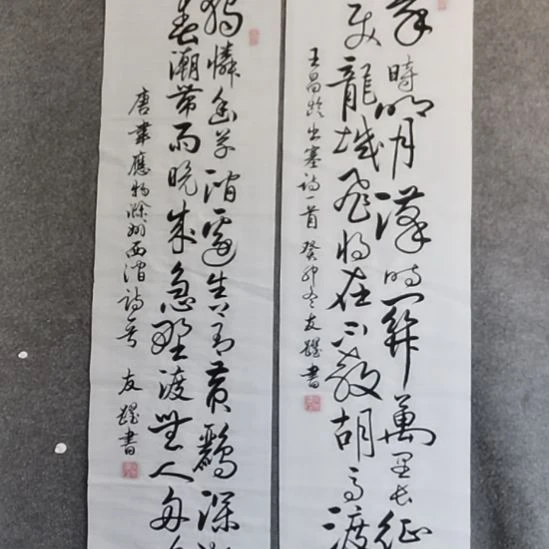 秦時明月漢時關萬里長征
使龍城飛將在不教胡馬渡
王昌齡出塞詩一首 癸卯冬友躍書
獨憐幽草澗邊生上有黃鸝深
春潮帶雨晚來急野渡無人舟
唐韋應物滁州西澗詩 友躍書